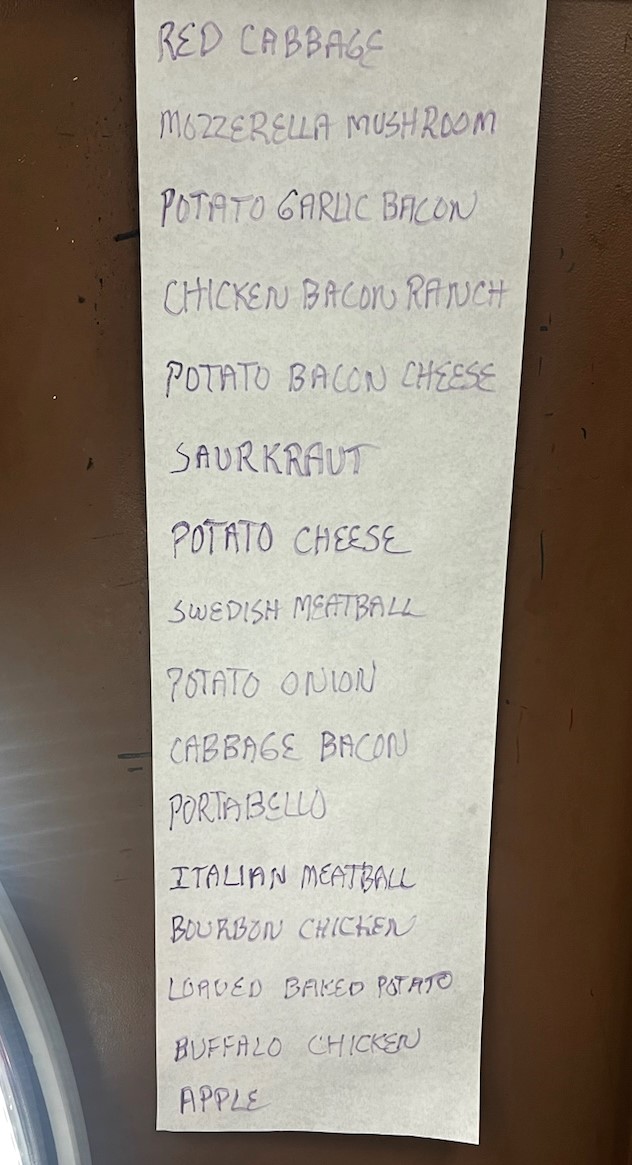 RED CABBAGE
MOZZERELLA MUSHROOM
POTATO GARLIC BACON
CHICKEN BACON RANCH
POTATO BACON CHEESE
SAURKRAUT
POTATO CHEESE
SWEDISH MEATBALL
POTATO ONION
CABBAGE BACON
PORTABELLO
ITALIAN MEATBALL
BOURBON CHICKEN
LOADED BAKED POTATO
BUFFALO CHICKEN
APPLE